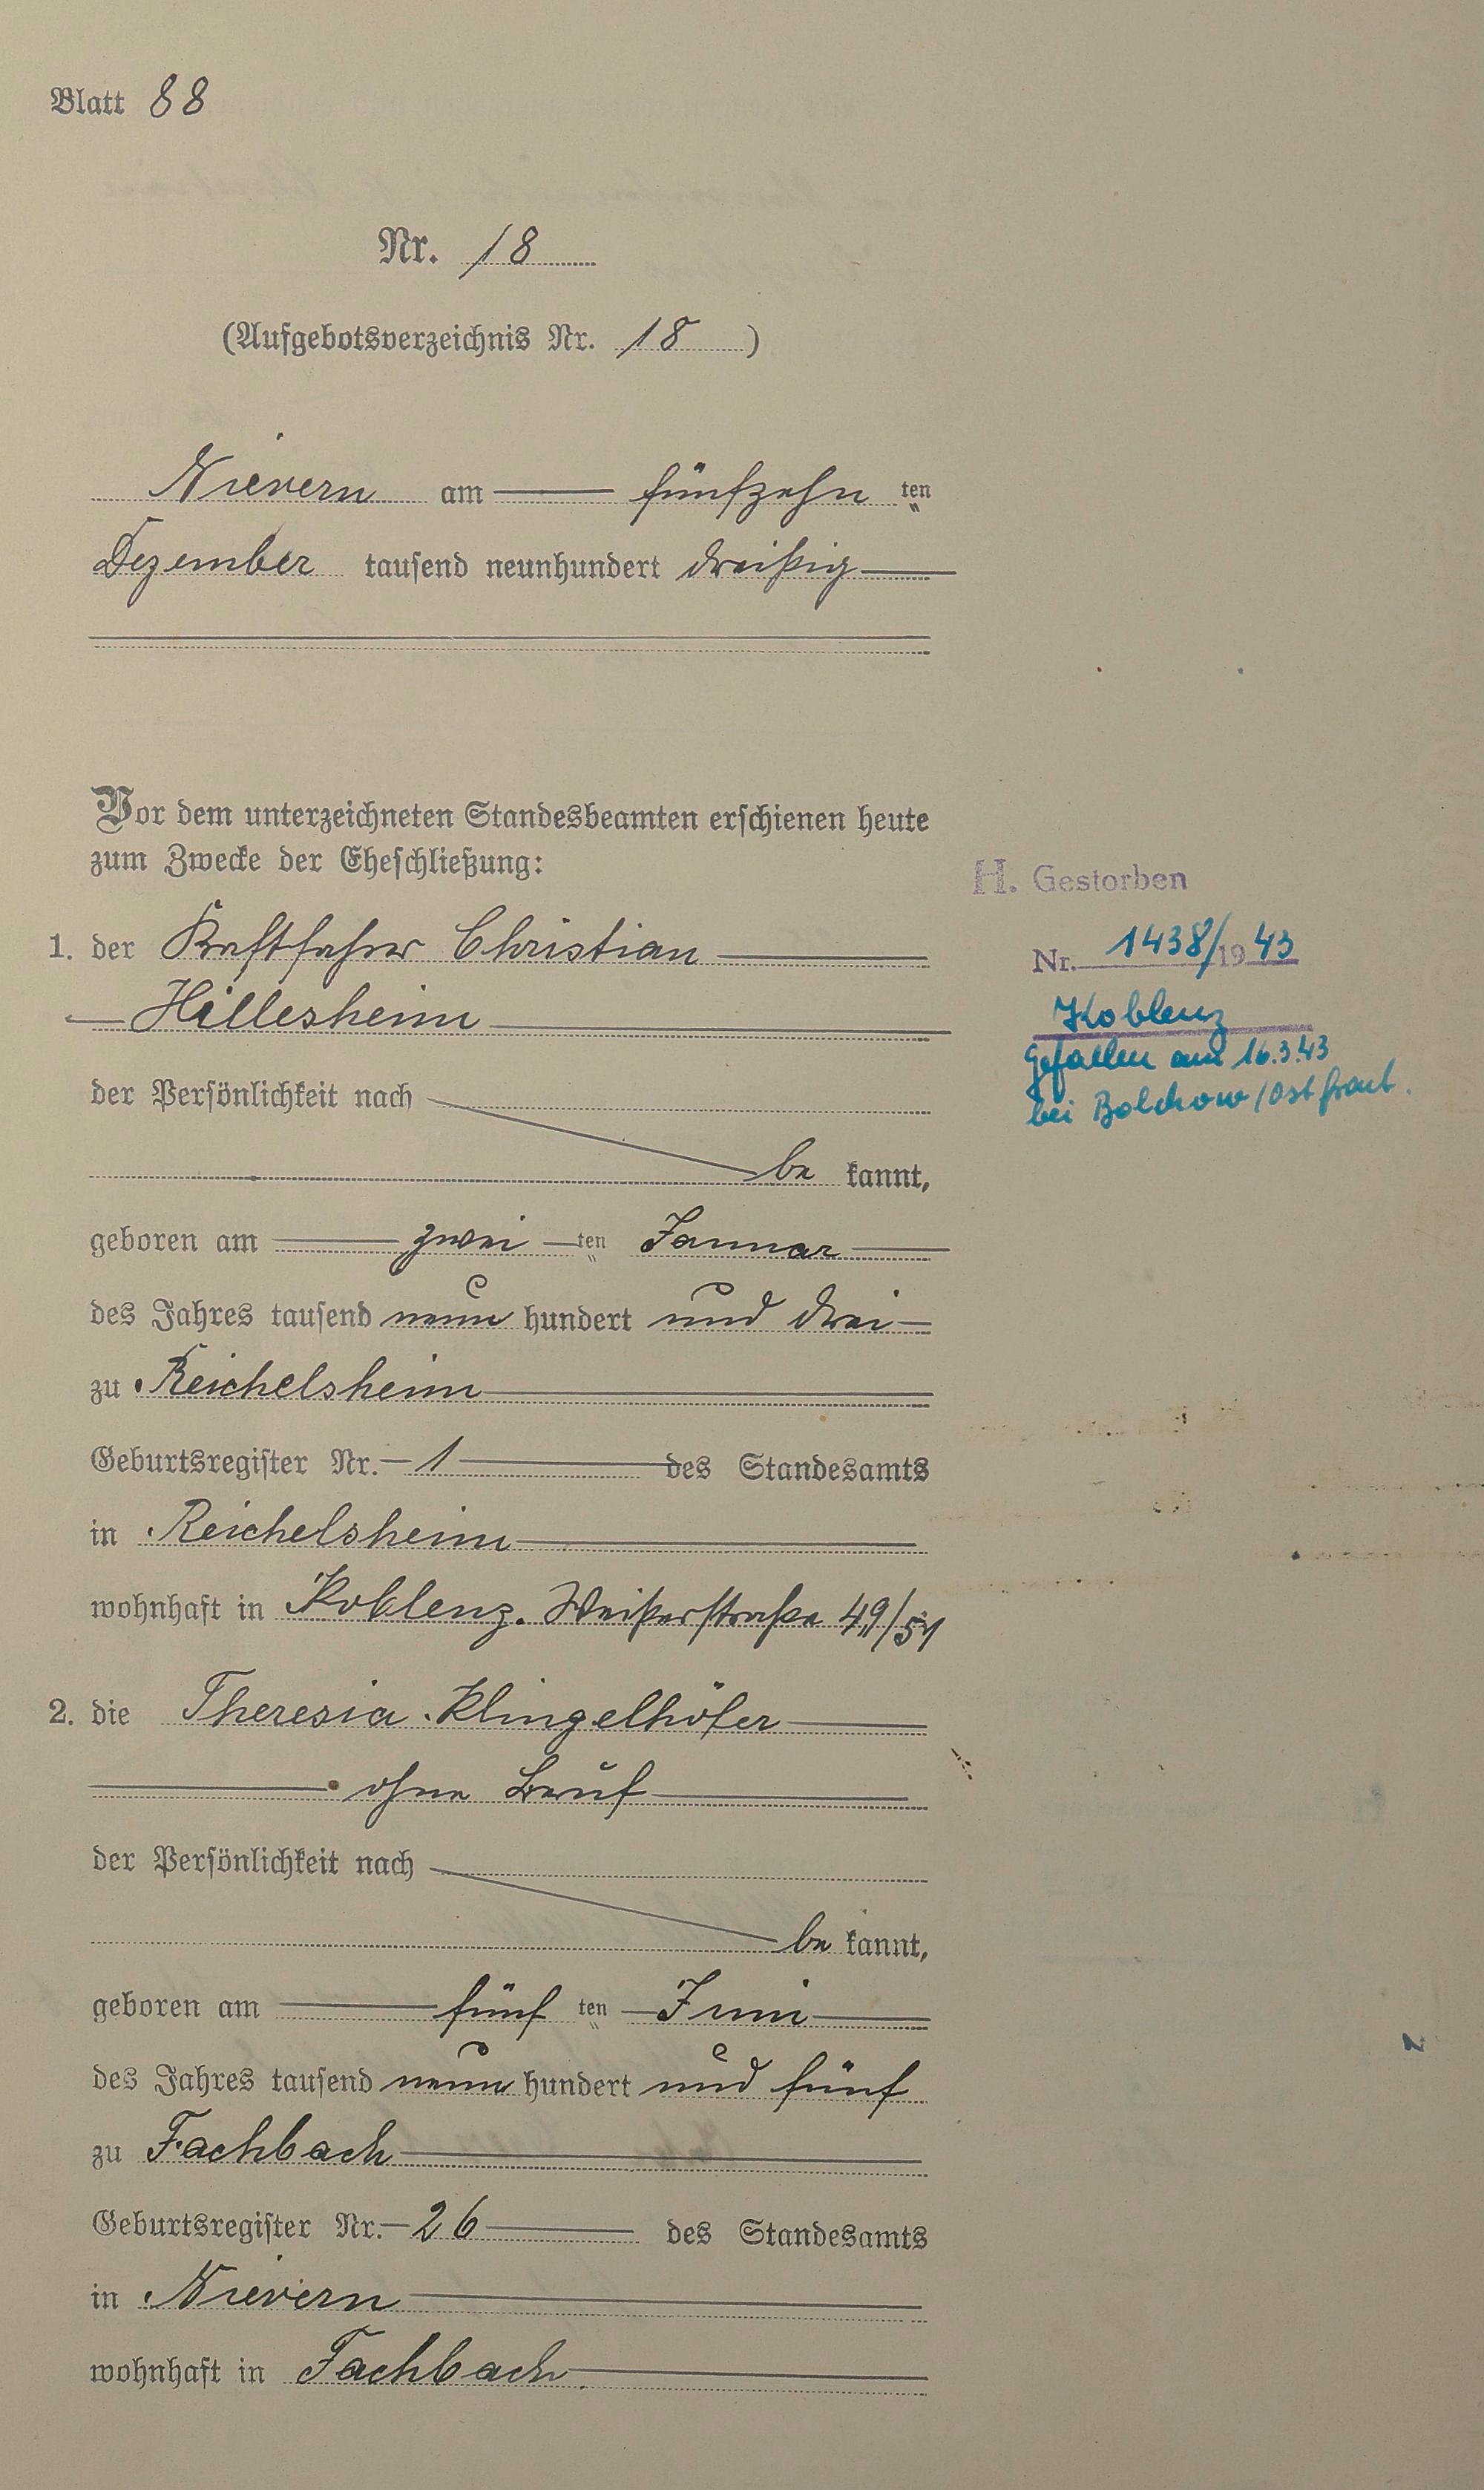 Blatt 88
Nr. 18
(Aufgebotsverzeichnis Nr. 18)
Nievern am fünfzehn ten
Dezember tausend neunhundert dreißig
Vor dem unterzeichneten Standesbeamten erschienen heute
zum Zwecke der Eheschließung:
1. der Kraftfahrer Christian
Hillesheim
der Persönlichkeit nach
be kannt,
geboren am zwei ten Januar
des Jahres tausend neun hundert und drei
zu Reichelsheim
Geburtsregister Nr. 1 des Standesamts
in Reichelsheim
wohnhaft in Koblenz. Weißerstraße 49/51
2. die Theresia Klingelhöfer
ohne Beruf
der Persönlichkeit nach
be kannt,
geboren am fünf ten Juni
des Jahres tausend neun hundert und fünf
zu Fachbach
Geburtsregister Nr. 26 des Standesamts
in Nievern
wohnhaft in Fachbach
H. Gestorben
Nr. 1438/1943
Koblenz
Gefallen am 16.3.43
bei Bolchow/Ostfront.